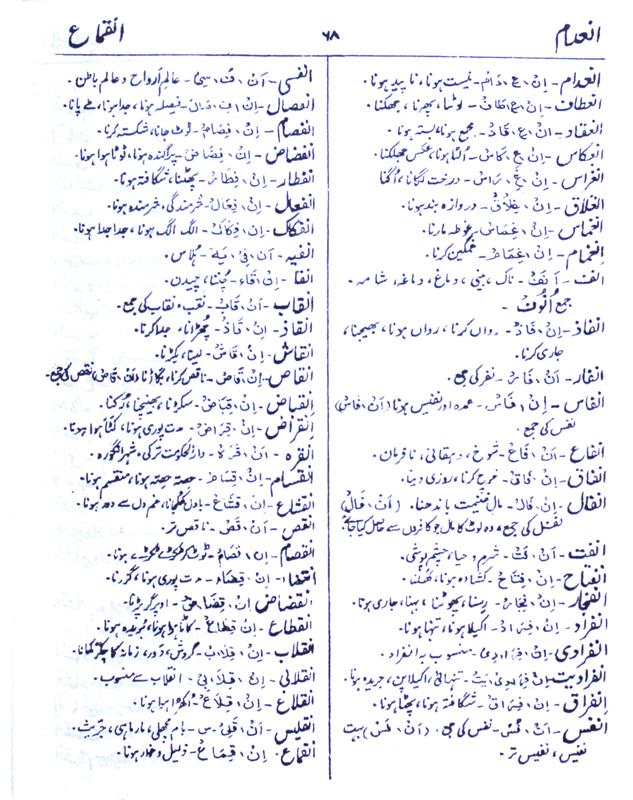 انعدام
٦٨
انقماع
انعدام - اِنْ، عِ، دَامْ - نیست ہونا، ناپید ہونا۔
انعطاف - اِنْ، عِ، طَافْ - لوٹنا، پھرنا، جھکنا۔
انعقاد - اِنْ، عِ، قَادْ - مجمع ہونا، بستہ ہونا۔
انعکاس - اِنْ، عِ، کَاسْ - اُلٹا ہونا، عکس جھلکنا۔
انغراس - اِنْ، غِ، رَاسْ - درخت لگانا، اُگنا
انغلاق - اِنْ، غِلَاقْ - دروازہ بند ہونا۔
انغماس - اِنْ، غِمَاسْ - غوطہ مارنا۔
انغمام - اِنْ، غِمَامْ - غمگین کرنا۔
انف - اَنَفْ - ناک، بینی، دماغ، دماغہ، شامہ۔
جمع اُنُوف -
انفاذ - اِنْ، فَاذْ - رواں کرنا، رواں ہونا، بھیجنا،
جاری کرنا۔
انفار - اَنْ، فَارْ - نفر کی جمع۔
انفاس - اِنْ، فَاسْ - عمدہ اور نفیس ہونا (اَنْ، فَاسْ)
نفس کی جمع۔
انفاع - اَنْ، فَاعْ - شوخ، دہقانی، نافرمان۔
انفاق - اِنْ، فَاقْ - خرچ کرنا، روزی دینا۔
انفال - اِنْ، فَالْ - مال غنیمت باندھنا۔ (اَنْ، فَالْ)
نفل کی جمع، وہ لوٹ کا مال جو کافروں سے حاصل کیا جائے۔
انفت - اَنْ، فَتْ - شرم و حیا، چشم پوشی۔
انفتاح - اِنْ، فِتَاحْ - کشادہ ہونا، کھلنا۔
انفجار - اِنْ، فِجَارْ - رسنا، پھوٹنا، بہنا، جاری ہونا۔
انفراد - اِنْ، فِرَادْ - اکیلا ہونا، تنہا ہونا۔
انفرادی - اِنْ، فِرَادِی - منسوب بہ انفراد۔
انفرادیت - اِنْ، فِرَادِی، یَتْ - تنہائی، اکیلاپن، جریدہ ہونا۔
انفراق - اِنْ، فِرَاقْ - شگافتہ ہونا، پھٹا ہونا۔
انفس - اَنْ، فُسْ - نفس کی جمع۔ (اَنْ، فَسْ) بہت
نفیس، نفیس تر۔
انفسی - اَنْ، فُ، سِیْ - عالمِ اَرواح و عالمِ باطن۔
انفصال - اِنْ، فِ، صَالْ - فیصلہ ہونا، جدا ہونا، طے پانا۔
انفصام - اِنْ، فِصَامْ - ٹوٹ جانا، شکستہ کرنا۔
انفضاض - اِنْ، فِضَاضْ - پراگندہ ہونا، ٹوٹا ہوا ہونا۔
انفطار - اِنْ، فِطَارْ - پھٹنا، شگافتہ ہونا۔
انفعال - اِنْ، فِعَالْ - شرمندگی، شرمندہ ہونا۔
انفکاک - اِنْ، فِکَاکْ - الگ الگ ہونا، جدا جدا ہونا۔
انفیہ - اَنْ، فِیْ، یَہْ -
انقا - اِنْ، قَاء - چننا، چیدن۔
انقاب - اَنْ، قَابْ - نقب، نقاب کی جمع۔
انقاذ - اِنْ، قَاذْ - چھڑانا، جدا کرنا۔
انقاش - اِنْ، قَاشْ - لینا، پکڑنا۔
انقاص - اِنْ، قَاصْ - ناقص کرنا، بگاڑنا (اَنْ، قَاصْ) نقص کی جمع۔
انقباض - اِنْ، قِبَاضْ - سکڑنا، بھنچنا، رُکنا۔
انقراض - اِنْ، قِرَاضْ - مدت پوری ہونا، کٹا ہوا ہونا۔
انقرہ - اَنْ، قَرَہْ - دارالحکومت ترکی، شہر انگورہ۔
انقسام - اِنْ، قِسَامْ - حصہ حصہ ہونا، منقسم ہونا۔
انقشاع - اِنْ، قِشَاعْ - بادل کھلنا، غم دل سے دور ہونا۔
انقص - اَنْ، قَصْ - ناقص تر۔
انقصام - اِنْ، قِصَامْ - ٹوٹ کر ٹکڑے ٹکڑے ہونا۔
انقضاء - اِنْ، قِضَاء - مدت پوری ہونا، گزرنا۔
انقضاض - اِنْ، قِضَاضْ - اوپر گر پڑنا۔
انقطاع - اِنْ، قِطَاعْ - کاٹا ہوا ہونا، بریدہ ہونا۔
انقلاب - اِنْ، قِلَابْ - گردش، دَور، زمانہ کا چکر کھانا۔
انقلابی - اِنْ، قِلَابِیْ - انقلاب سے منسوب۔
انقلاع - اِنْ، قِلَاعْ - اکھڑا ہوا ہونا۔
انقلیس - اَنْ، قَلِیْ، سْ - بام مچھلی، مار ماہی، جریث۔
انقماع - اِنْ، قِمَاعْ - ذلیل و خوار ہونا۔